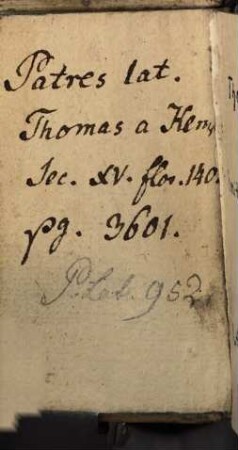 Patres lat.
Thomas a Kemp
Sec. XV. flor. 140.
pg. 3601.
P. lat. 952